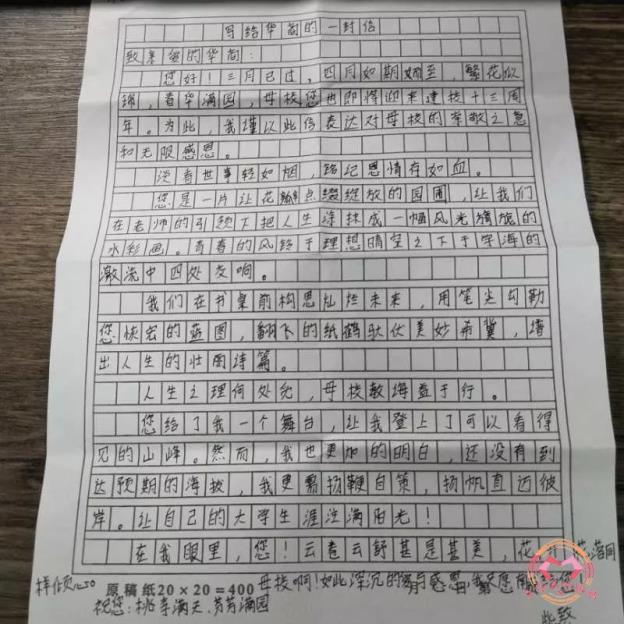 写给华商的一封信
致亲爱的华商：
您好！三月已过，四月如期而至，繁花似
锦，春华满园，母校您也即将迎来建校十三周
年。为此，我谨以此信表达对母校的崇敬之意
和无限感恩。
淡看世事轻如烟，铭记恩情存如血。
您是一片让花点缀绽放的园圃，让我们
在老师的引领下把人生涂抹成一幅风光旖旎的
水彩画。青春的风铃于理想晴空之下于学海的
激流中四处交响。
我们在书桌前构思灿烂未来，用笔尖勾勒
您恢宏的蓝图，翻飞的纸鹤驮伏美妙希冀，谱
出人生的壮阔诗篇。
人生之理何处允，母校教诲益于行。
您给了我一个舞台，让我登上了可以看得
见的山峰。然而，我也更加的明白，还没有到
达预期的海拔，我更需扬鞭自策，扬帆直迈彼
岸。让自己的大学生涯注满阳光！
在我眼里，您！云卷云舒甚是甚美，花开花落同
样倾心。原稿纸20×20=400 母校啊！如此深沉的感恩，我愿您
祝您：桃李满天，芬芳满园
此致